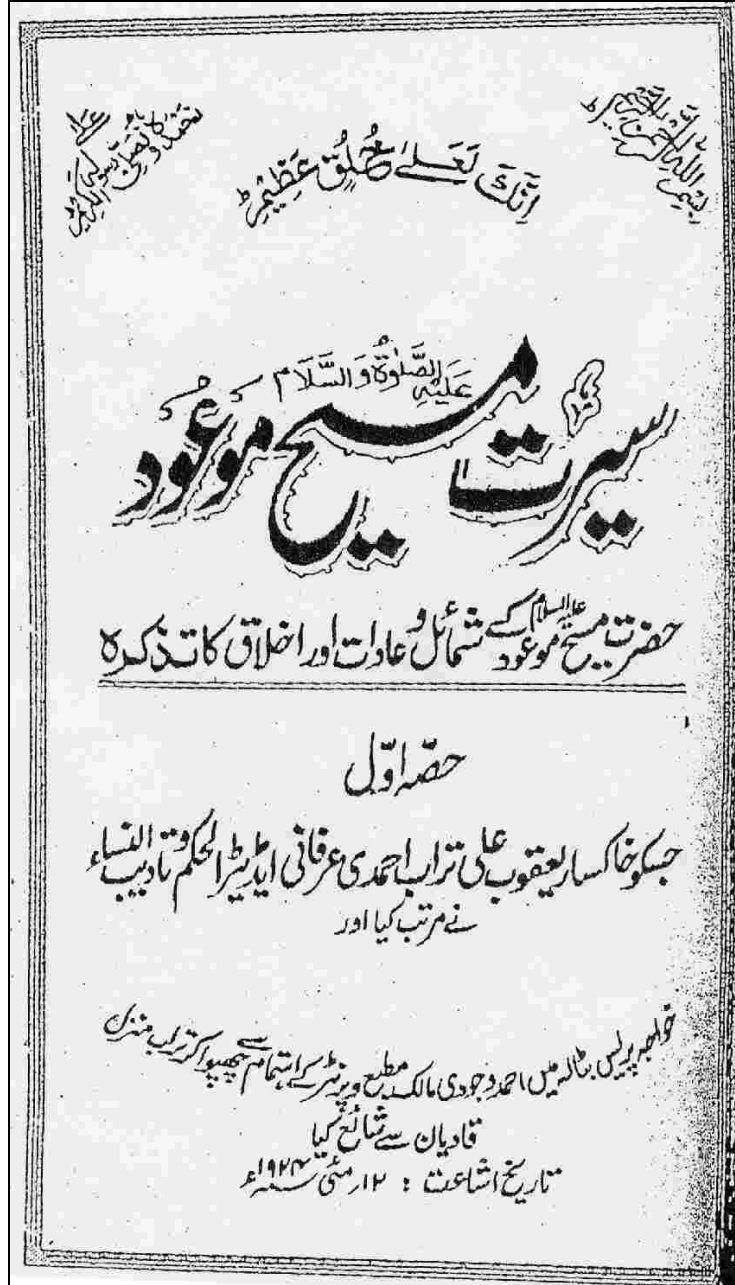 بِسْمِ اللّٰهِ الرَّحْمٰنِ الرَّحِيْمِ
نحمده و نصلی علیٰ رسولہ الکریم
اِنَّكَ لَعَلٰے خُلُقٍ عَظِیْمٍ
سیرت مسیح موعود
عَلَیْہِ الصَّلٰوۃُ وَ السَّلَام
حضرت مسیح موعود علیہ السلام کے شمائل و عادات اور اخلاق کا تذکرہ
حصّہ اوّل
جسکو خاکسار یعقوب علی تراب احمدی عرفانی ایڈیٹر الحکم و تادیب النساء
نے مرتب کیا اور
خواجہ پریس بٹالہ میں احمد وجودی مالک مطبع و پرنٹر کے اہتمام سے چھپوا کر تراب منزل
قادیان سے شائع کیا
تاریخ اشاعت : ۱۲ مئی سنہ ۱۹۲۴ء